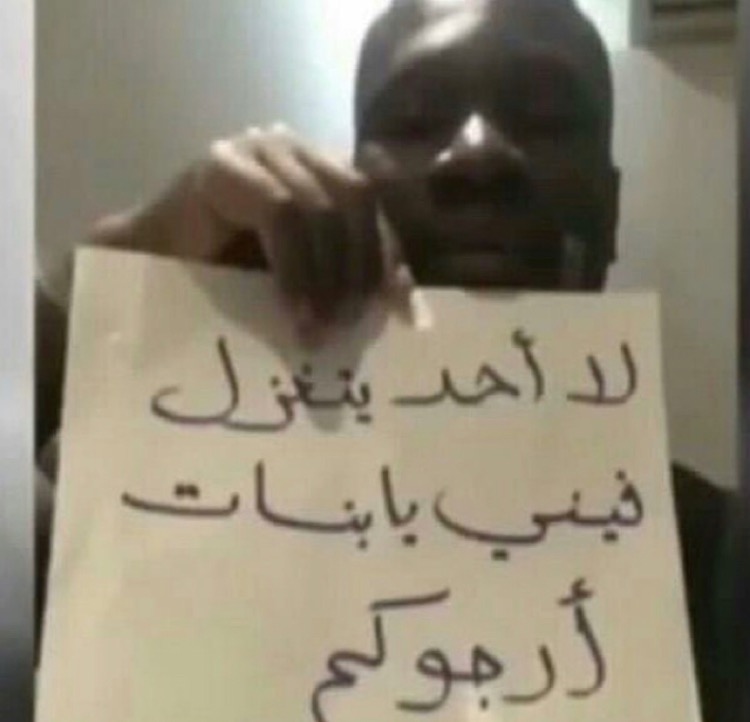 لا أحد يتغزل
فيني يا بنات
أرجوكم